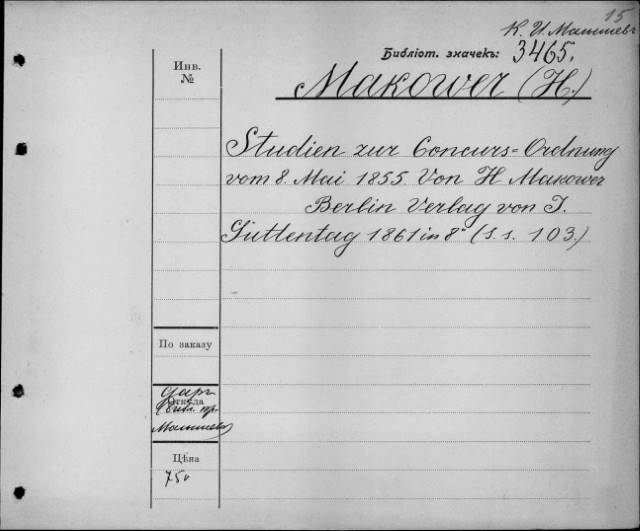 15
К. И. Малышевъ
Библіот. значекъ: 3465.
Инв.
№
Makower (H.)
Studien zur Concurs=Ordnung
vom 8. Mai 1855. Von H Makower
Berlin Verlag von J.
Guttentag 1861 in 8° (S. s. 103.)
По заказу
Откуда
даръ
Малышева
Цѣна
75